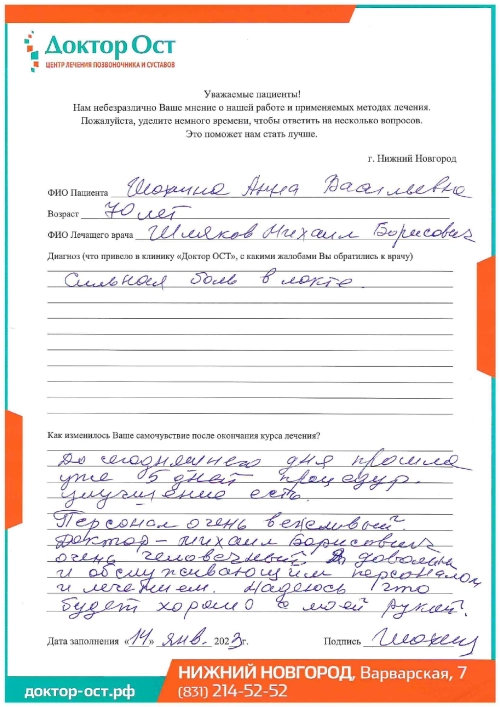 Доктор Ост
ЦЕНТР ЛЕЧЕНИЯ ПОЗВОНОЧНИКА И СУСТАВОВ
Уважаемые пациенты!
Нам небезразлично Ваше мнение о нашей работе и применяемых методах лечения.
Пожалуйста, уделите немного времени, чтобы ответить на несколько вопросов.
Это поможет нам стать лучше.
г. Нижний Новгород
ФИО Пациента Анна Васильевна
Возраст 70 лет
ФИО Лечащего врача Шляков Михаил Борисович
Диагноз (что привело в клинику «Доктор ОСТ», с какими жалобами Вы обратились к врачу)
Сильная боль в локте.
Как изменилось Ваше самочувствие после окончания курса лечения?
До сегодняшнего дня прошла
уже 5 дней процедур.
улучшение есть.
Персонал очень вежливый.
Доктор – Михаил Борисович
очень человечный. Я довольна
и обслуживающим персоналом
и лечением. Надеюсь что
будет хорошо с моей рукой.
Дата заполнения «14» янв. 2023г. Подпись
НИЖНИЙ НОВГОРОД, Варварская, 7
доктор-ост.рф (831) 214-52-52